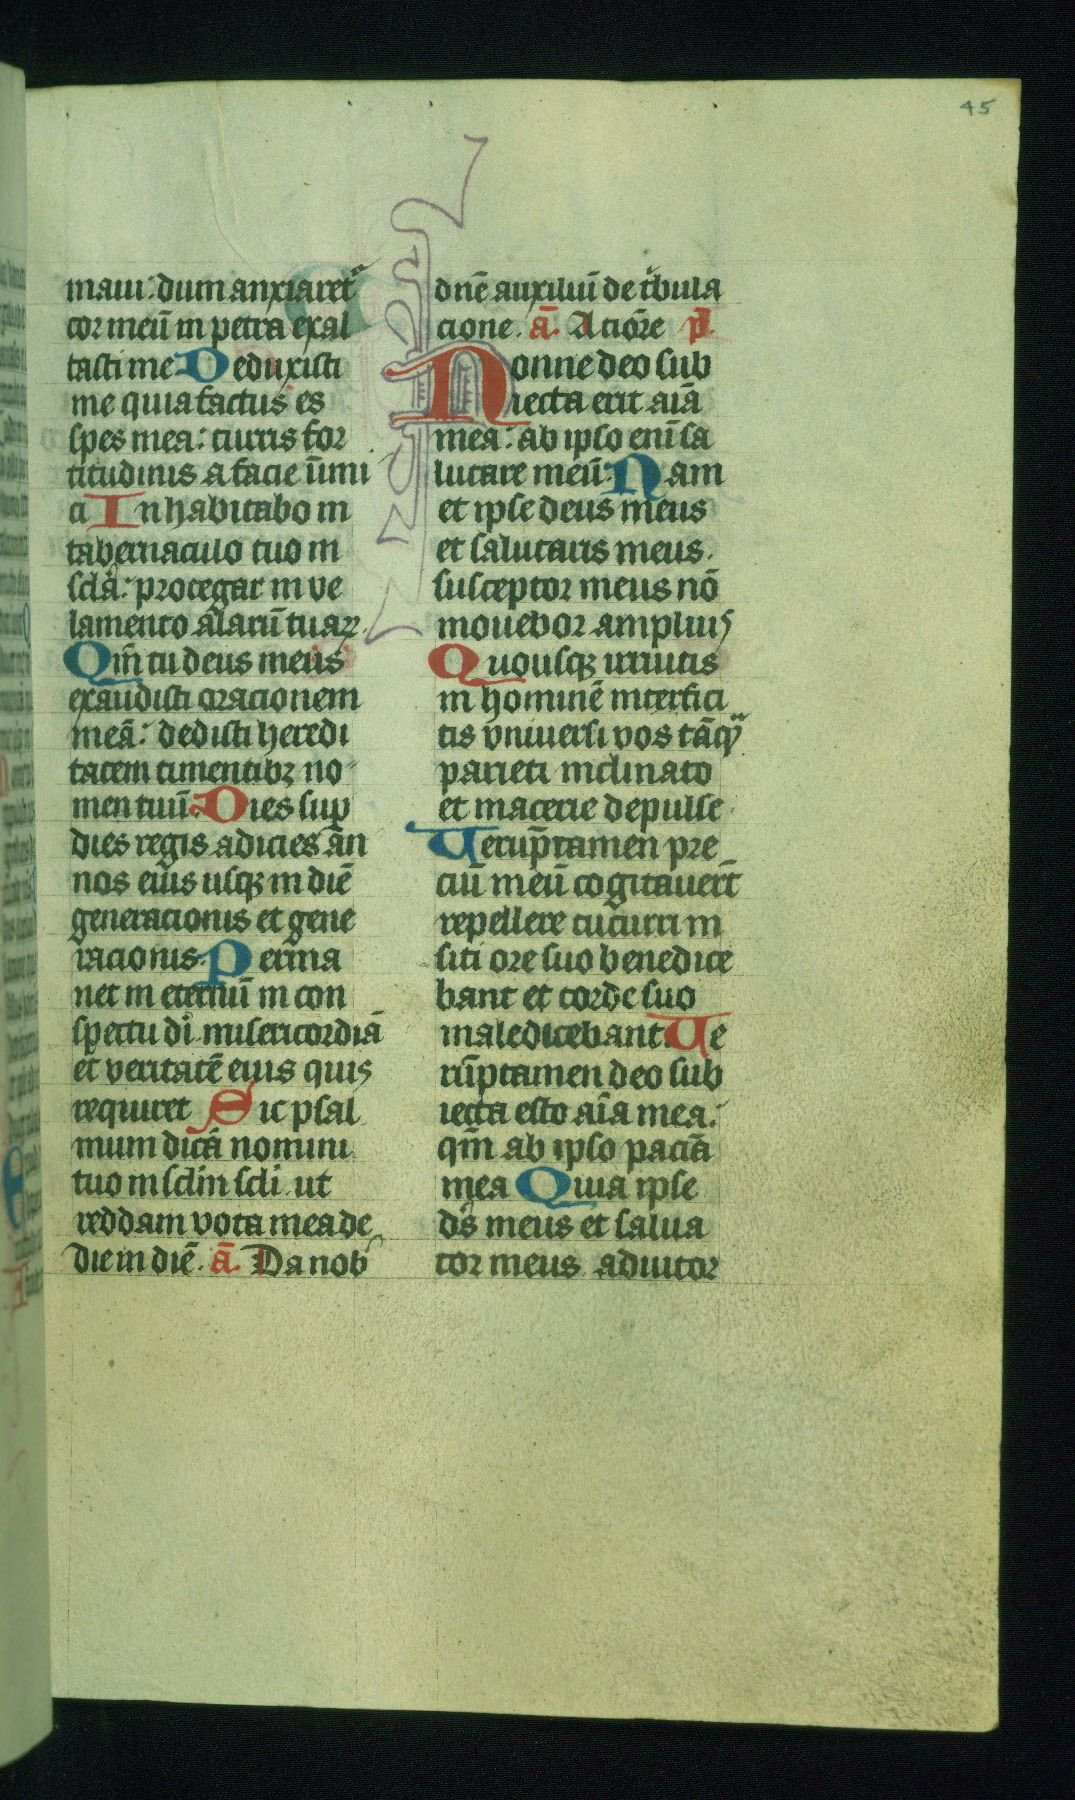 45
maui: dum anxiaret᷑
cor meū in petra exal
tasti me Deduxisti
me quia factus es
spes mea: turris for
titudinis a facie inimi
ci Inhabitabo in
tabernaculo tuo in
scl̄a: protegar in ve
lamento alarū tuaꝝ.
Qm̄ tu deus meus
exaudisti oracionem
meā: dedisti heredi
tatem timentibꝫ no
men tuū: Dies sup
dies regis adicies an
nos eius usqꝫ in diē
generacionis et gene
racionis. Perma
net in eternū in con
spectu di misericordiā
et veritatē eius quis
requiret Sic psal
mum dicā nomini
tuo in sclm̄ scli ut
reddam vota mea de
die in diē. ā. Da nob
dn̄e auxiliū de tͥbula
cione. ā. A tiōre p̄.
Nonne deo sub
iecta erit aīa
mea: ab ipso eni sa
lutare meū. Nam
et ipse deus meus
et salutaris meus.
susceptor meus nō
movebor amplius
Quousqꝫ irruitis
in hominē interfici
tis vniuersi vos tāqͣ
parieti inclinato
et macerie depulse
Verūptamen pre
ciū meū cogitauert̄
repellere cucurri in
siti ore suo benedice
bant et corde suo
maledicebant. Ve
rūptamen deo sub
iecta esto aīa mea:
qm̄ ab ipso paciā
mea Quia ipse
ds̄ meus et salua
tor meus adiutor